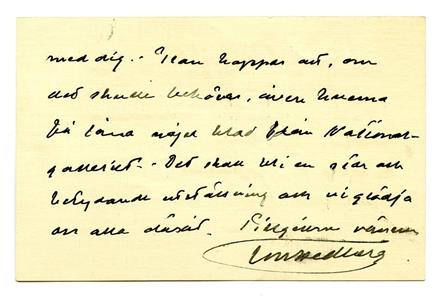 med dig. - Han hoppas att, om
det skulle behöfvas, äfven kunna
få låna något blad från National-
galleriet. - Det skall bli en och
betydande utställning och vi glädja
oss alla däråt. vännen